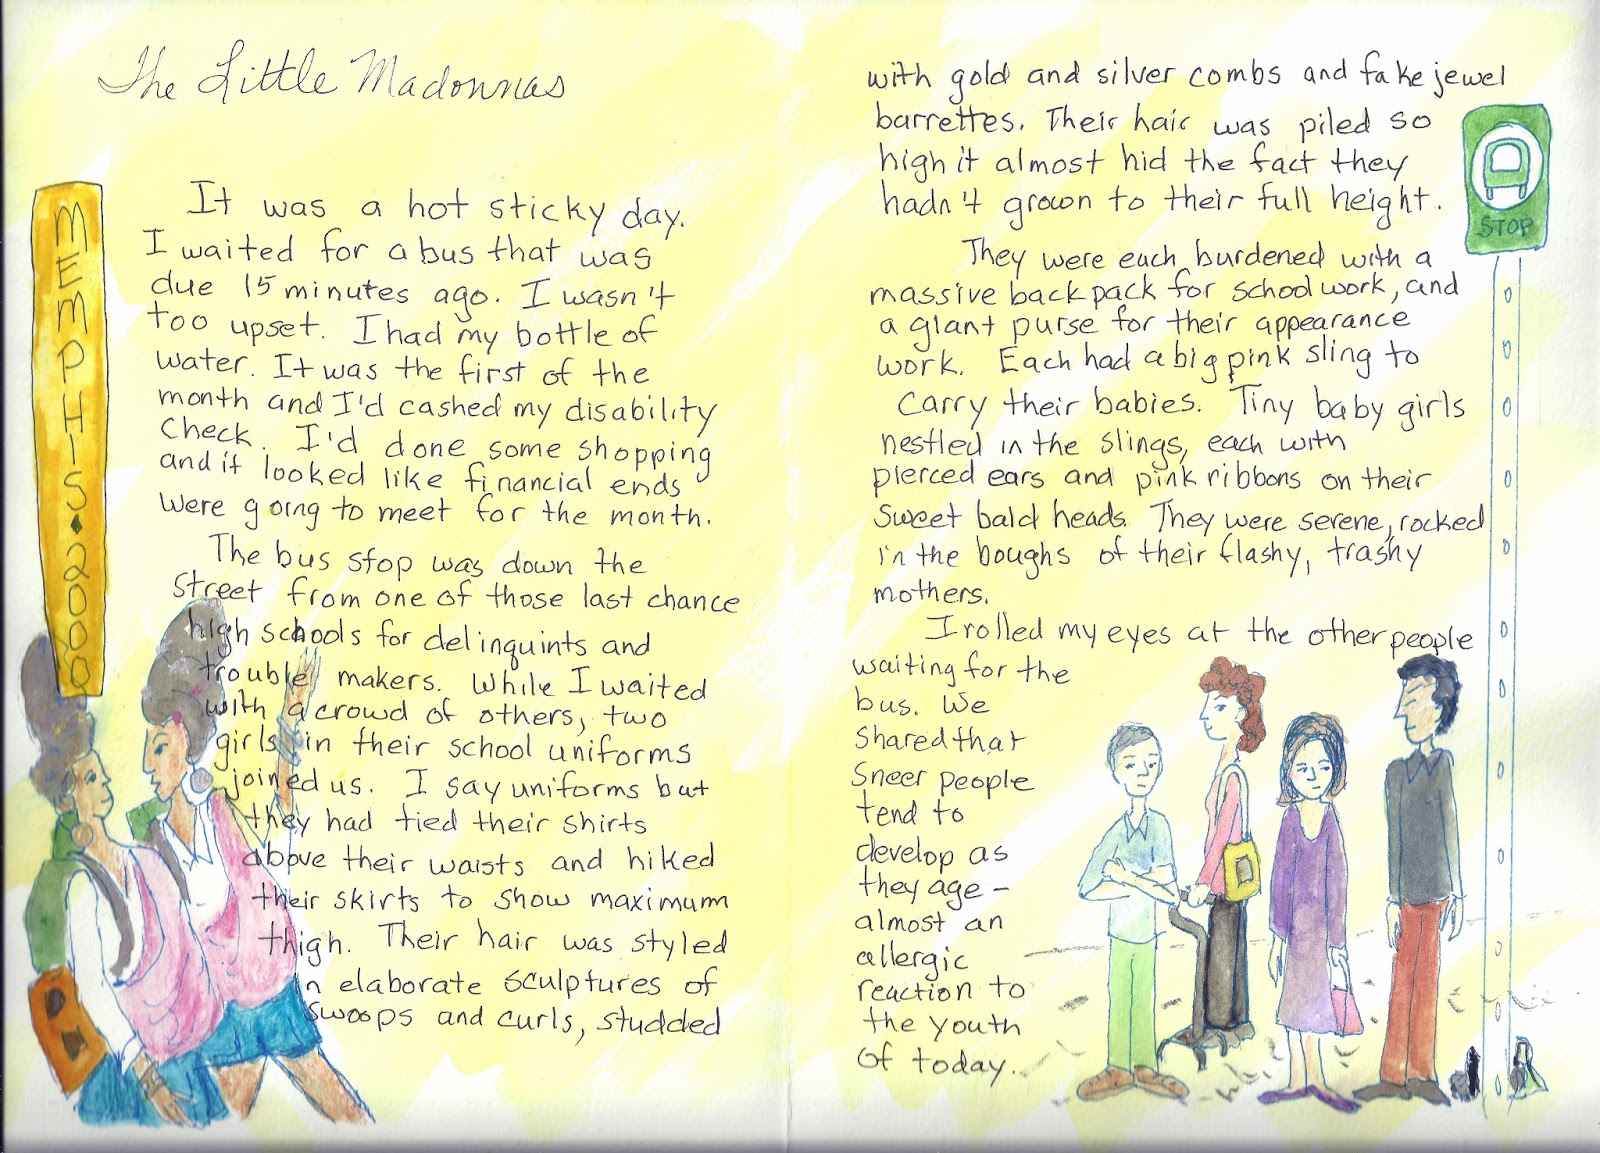 The Little Madonnas
MEMPHIS◆2000
It was a hot sticky day.
I waited for a bus that was
due 15 minutes ago. I wasn't
too upset. I had my bottle of
water. It was the first of the
month and I'd cashed my disability
check. I'd done some shopping
and it looked like financial ends
were going to meet for the month.
The bus stop was down the
street from one of those last chance
high schools for delinquints and
trouble makers. While I waited
with a crowd of others, two
girls in their school uniforms
joined us. I say uniforms but
they had tied their shirts
above their waists and hiked
their skirts to show maximum
thigh. Their hair was styled
in elaborate sculptures of
swoops and curls, studded
with gold and silver combs and fake jewel
barrettes. Their hair was piled so
high it almost hid the fact they
hadn't grown to their full height.
They were each burdened with a
massive back pack for school work, and
a giant purse for their appearance
work. Each had a big pink sling to
carry their babies. Tiny baby girls
nestled in the slings, each with
pierced ears and pink ribbons on their
sweet bald heads. They were serene, rocked
in the boughs of their flashy, trashy
mothers.
I rolled my eyes at the other people
waiting for the
bus. We
shared that
sneer people
tend to
develop as
they age –
almost an
allergic
reaction to
the youth
of today.
STOP